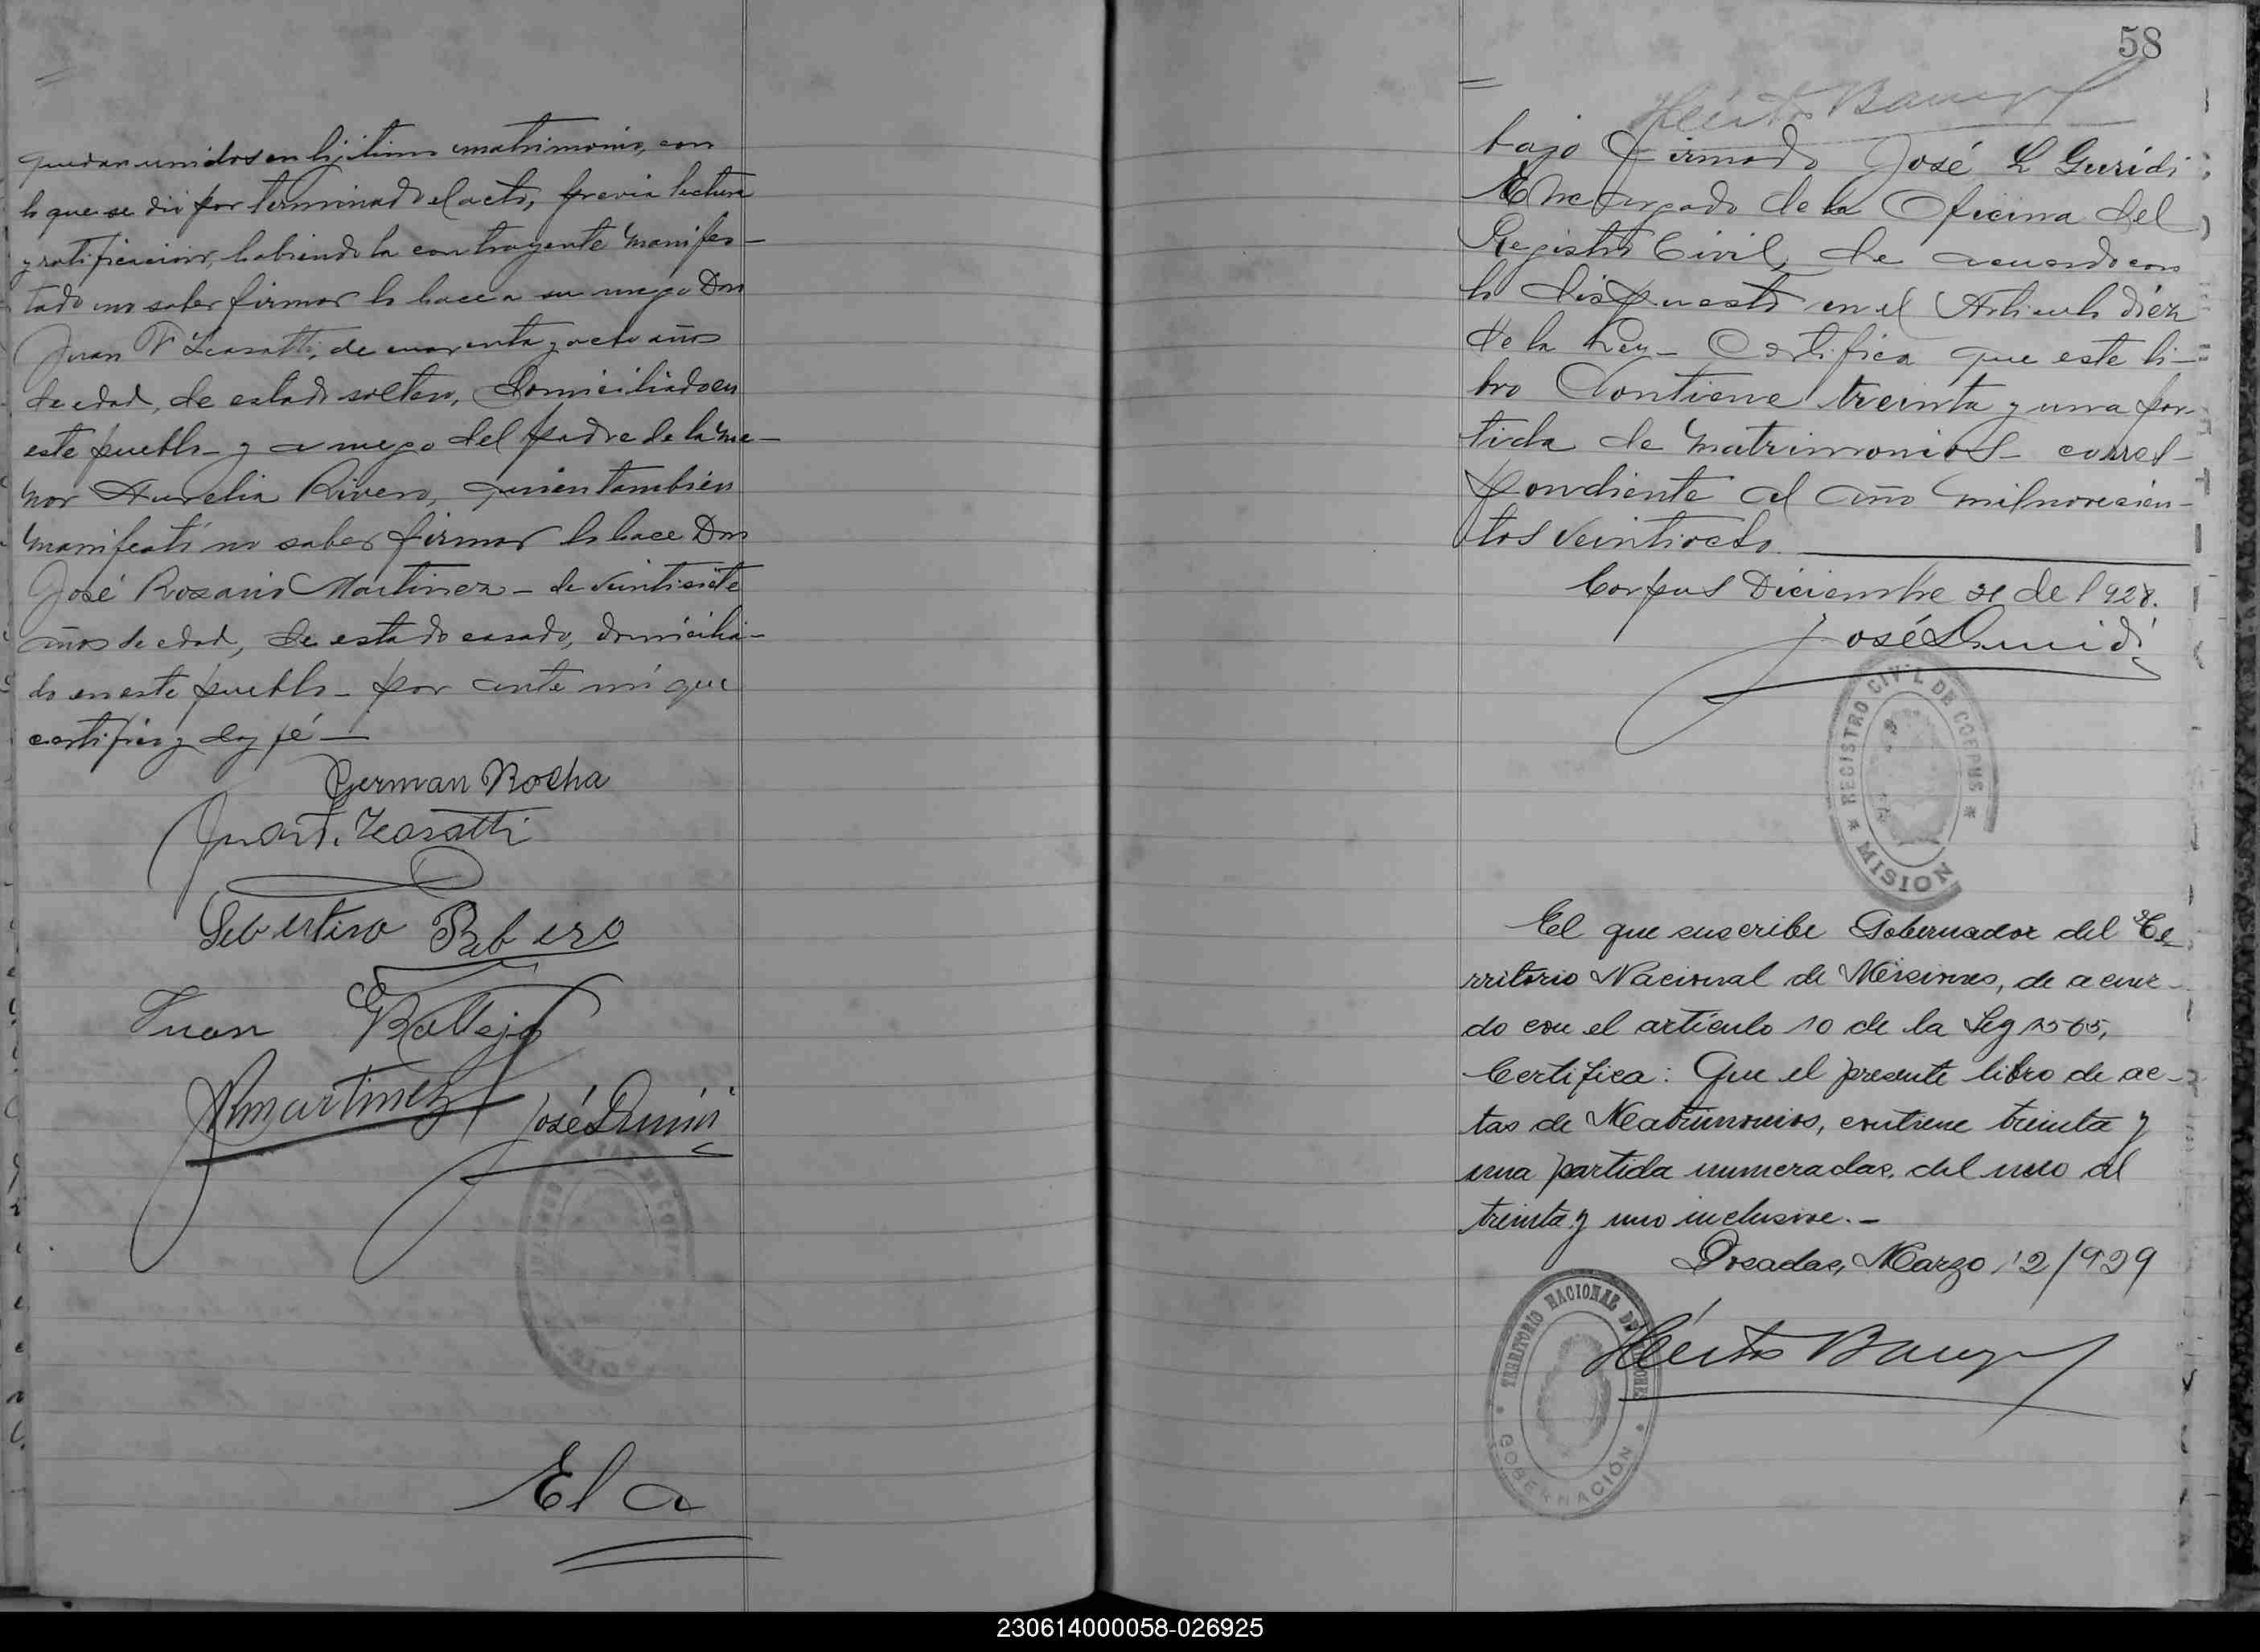 quedar unidos en lijitimo matrimonio, con
lo que se dió por terminado el acto, previa lectura
y ratificacion, habiendo la contrayente manifes-
tado no saber firmar lo hace a su ruego Don
Juan F Zcasatti, de cuarenta y ocho años
de edad, de estado soltero, Domiciliado en
este pueblo - y a ruego del padre de la me-
nor Aurelia Rivero, quien tambien
manifestó no saber firmar lo hace Don
José Rosario Martinez - de veintisiete
años de edad, de estado casado, domicilia-
do en este pueblo - por ante mí que
certifico y doy fé —
German Rocha
Juan F. Zcasatti
Juan Vallejo
JRmartinez
José L Guridi
El a
58
Héctor Barreyro
bajo firmado José L Guridi
Encargado de la Oficina del
Registro Civil, de acuerdo con
lo dispuesto en el Articulo diez
de la Ley - Certifica que este li-
bro Contiene treinta y una par-
tida de matrimonios - corres-
pondiente al año mil novecien-
tos veintiocho
Corpus Diciembre 31 de 1928.
José L Guridi
REGISTRO CIVIL DE CORPUS
MISION
El que suscribe Gobernador del Te-
rritorio Nacional de Misiones, de acuer-
do con el artículo 10 de la Ley 1565,
Certifica: Que el presente libro de ac-
tas de Matrimonios, contiene treinta y
una partida numeradas, del uno al
treinta y uno inclusive. -
Posadas, Marzo 12/929
Héctor Barreyro
TERRITORIO NACIONAL DE MISIONES
GOBERNACIÓN
230614000058-026925